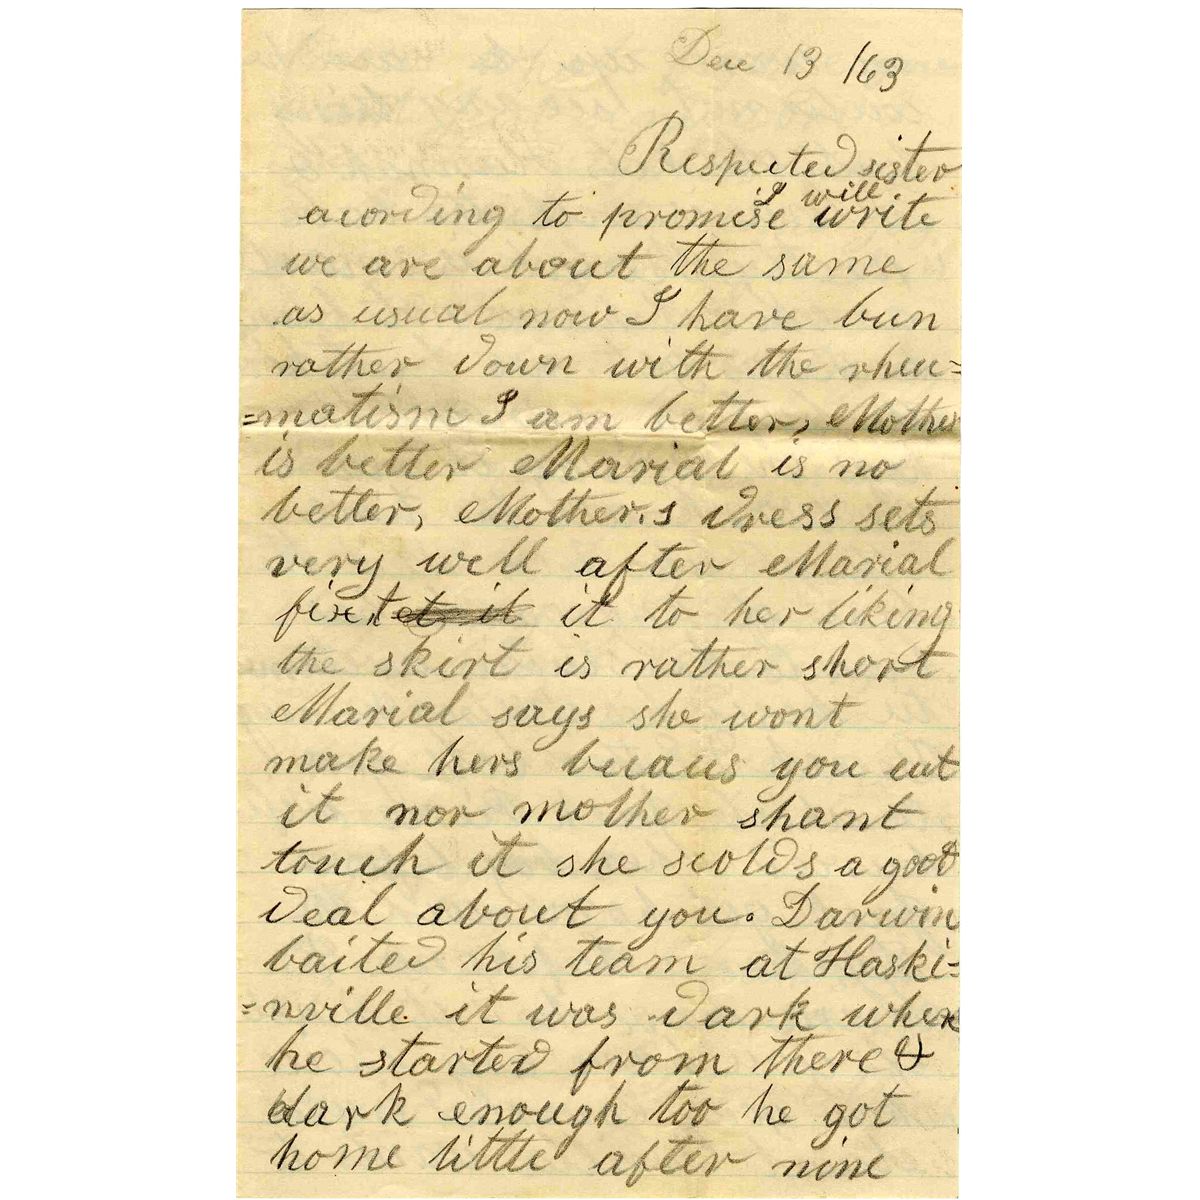 Dec 13 /63
Respected sister
acording to promise I will write
we are about the same
as usual now I have bun
rather down with the rheu=
=matism I am better, Mother
is better Marial is no
better, Mother,s dress sets
very well after Marial
fixt it to her liking
the skirt is rather short
Marial says she wont
make hers becaus you cut
it nor mother shant
touch it she scolds a good
deal about you. Darwin
baited his team at Haski=
=nville it was dark when
he started from there &
dark enough too he got
home little after nine